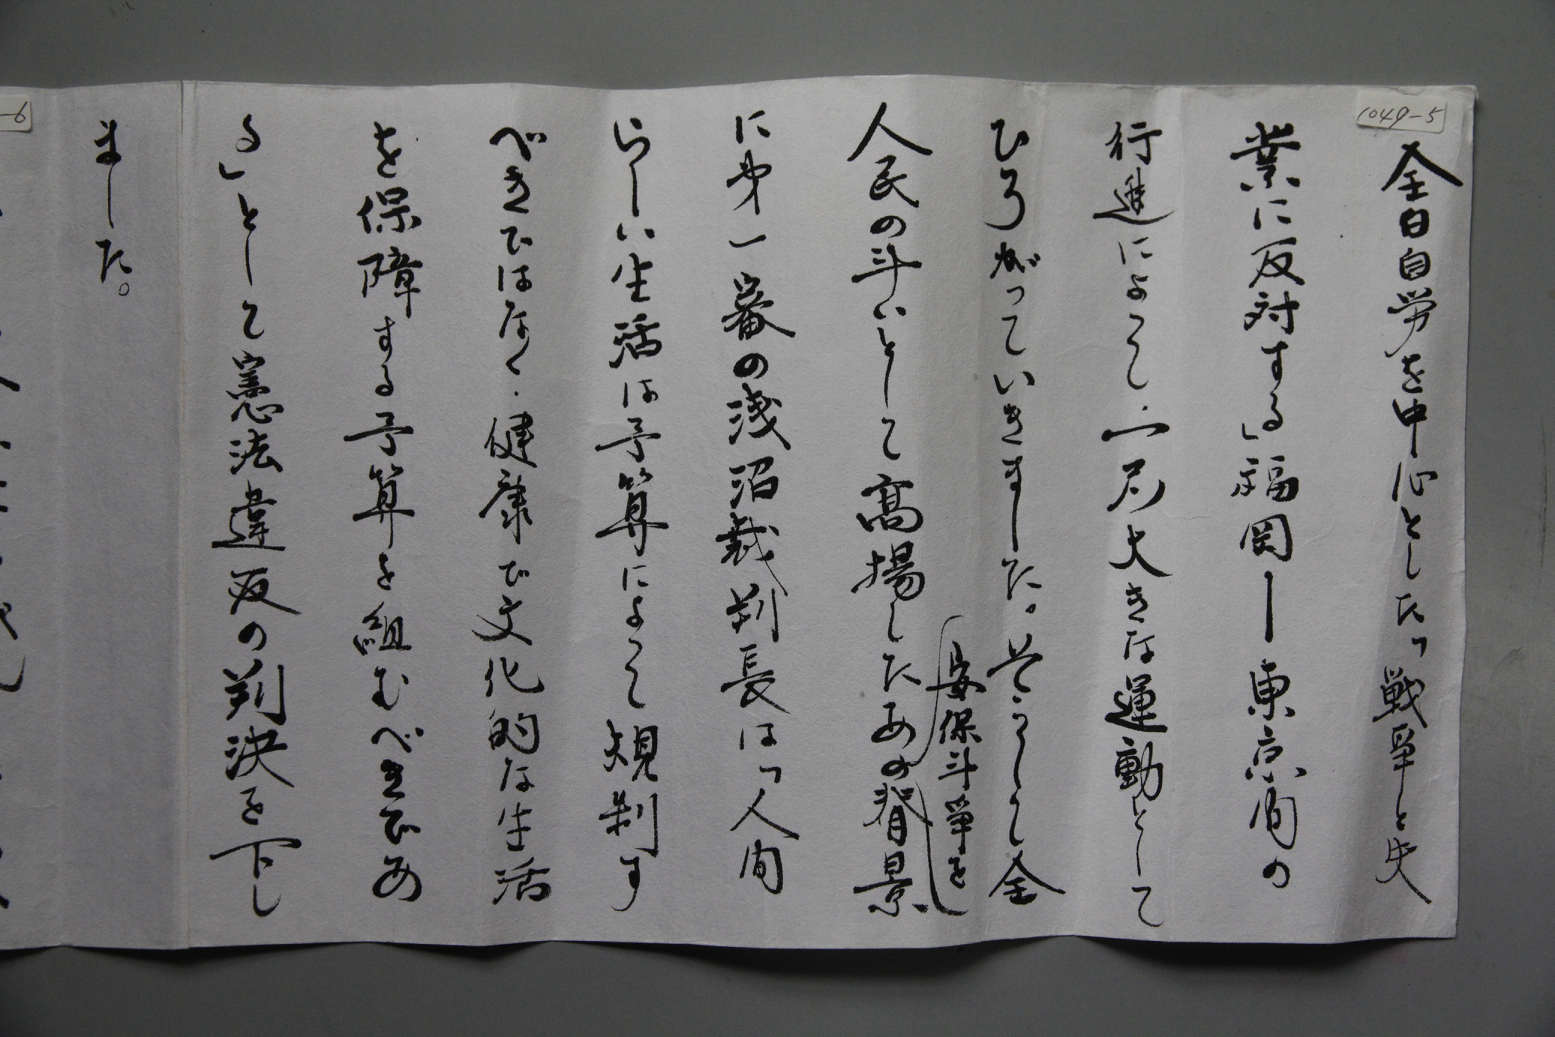 1049-5
全日自労を中心とした「戦争と失
業に反対する」福岡ー東京間の
行進によって、一層大きな運動として
ひろがっていきました。そうして全
安保斗争を
人民の斗いとして高揚したあの背景
に第一審の浅沼裁判長は「人間
らしい生活は予算によって規制す
べきではなく、健康で文化的な生活
を保障する予算を組むべきであ
る」として憲法違反の判決を下し
ました。
-6